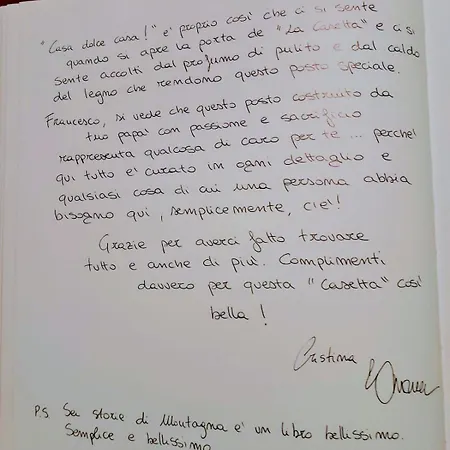 "Casa dolce casa!" e' proprio così che ci si sente
quando si apre la porta de "La Casetta" e ci si
sente accolti dal profumo di pulito e dal caldo
del legno che rendono questo posto speciale.
Francesco, si vede che questo posto costruito da
tuo papa' con passione e sacrificio
rappresenta qualcosa di caro per te... perche'
qui tutto e' curato in ogni dettaglio e
qualsiasi cosa di cui una persona abbia
bisogno qui, semplicemente, c'e'!
Grazie per averci fatto trovare
tutto e anche di piu'. Complimenti
davvero per questa "Casetta" così
bella!
Cristina
P.S. Sei storie di Montagna e' un libro bellissimo.
Semplice e bellissimo